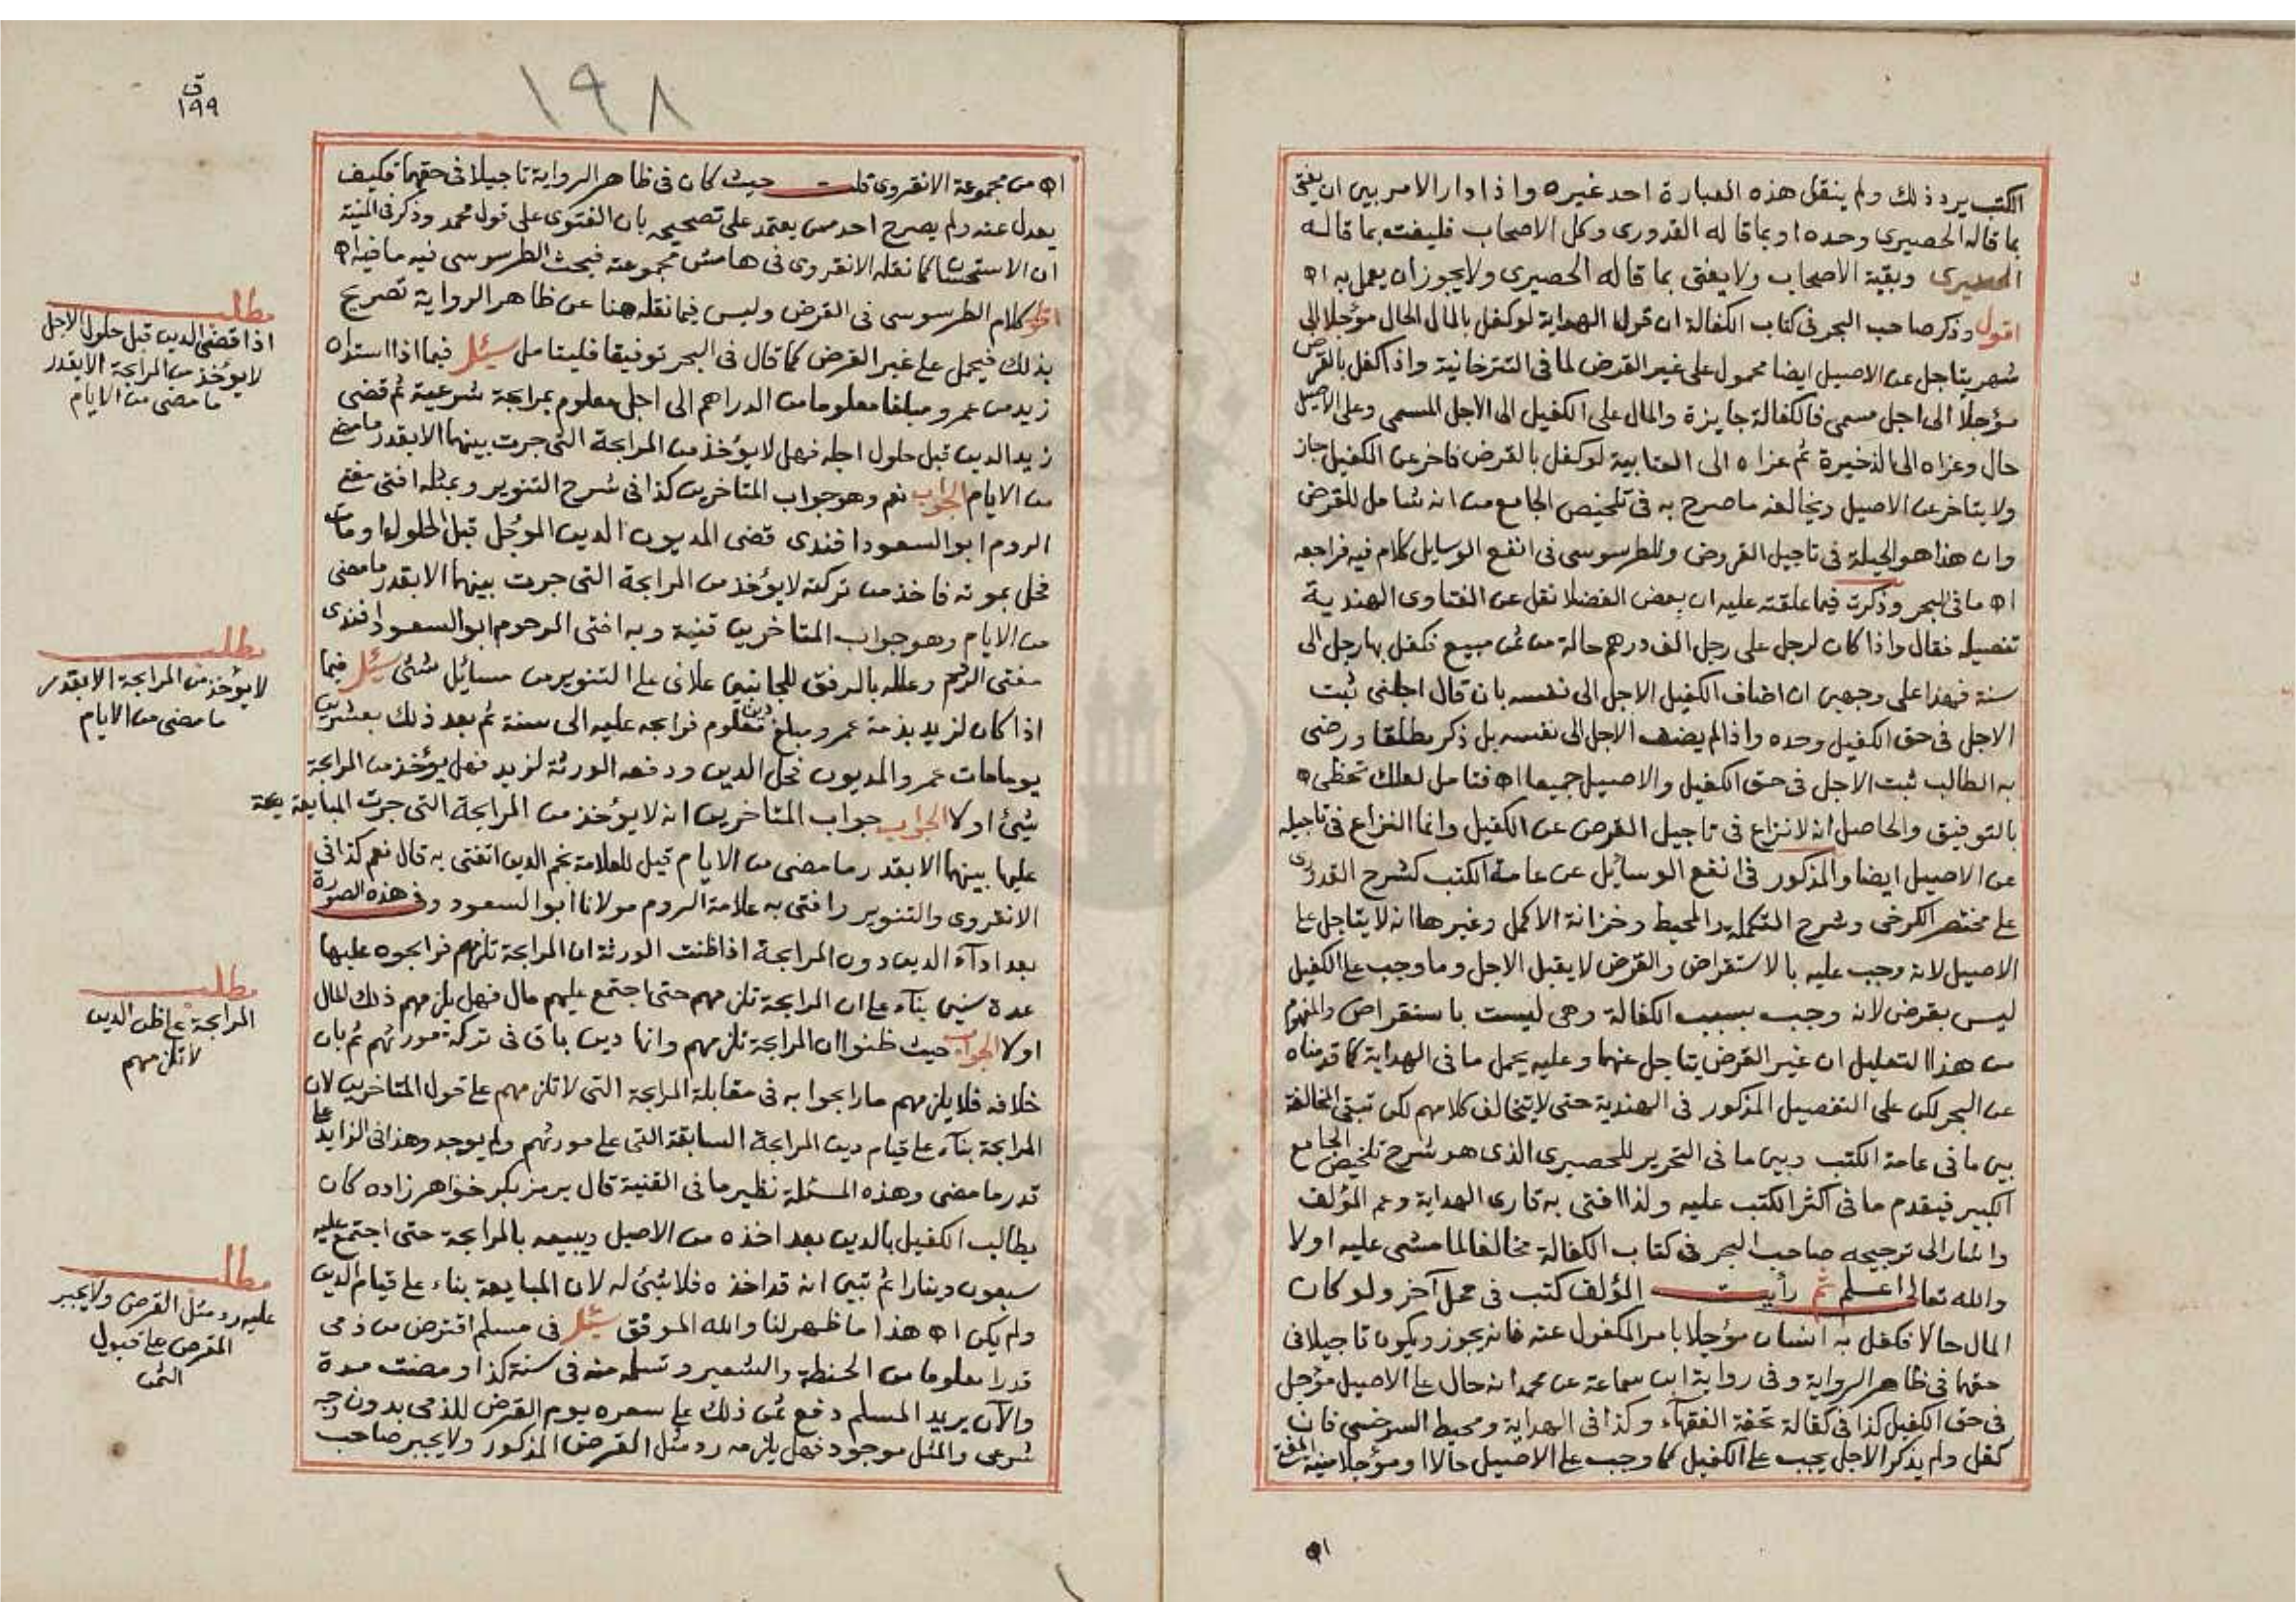 الكتب يرد ذلك ولم ينقل هذه العبارة احد غيره واذا دار الامر بين ان يفتى
بما قاله الحصيرى وحده او بما قاله القدورى وكل الاصحاب فليفت بما قاله
وبقية الاصحاب ولا يفتى بما قاله الحصيرى ولا يجوز ان يعمل به اه
اقول وذكر صاحب البحر فى كتاب الكفالة ان قول الهداية لو كفل بالمال الحال مؤجلا الى
شهر يتاجل عن الاصيل ايضا محمول على غير القرض لما فى التترخانية واذا كفل بالقرض
مؤجلا الى اجل مسمى فالكفالة جايزة والمال على الكفيل الى الاجل المسمى وعلى الاصيل
حال وعزاه الى الذخيرة ثم عزاه الى العتابية لو كفل بالقرض فاخر عن الكفيل جاز
ولا يتاخر عن الاصيل ويخالفه ما صرح به فى تلخيص الجامع من انه شامل للقرض
وان هذا هو الحيلة فى تاجيل القروض وللطرسوسى فى انفع الوسايل كلام فيه فراجعه
اه ما فى البحر وذكرت فيما علقته عليه ان بعض الفضلا نقل عن الفتاوى الهندية
تفصيله فقال واذا كان لرجل على رجل الف درهم حالة من ثمن مبيع فكفل بها رجل الى
سنة فهذا على وجهين ان اضاف الكفيل الاجل الى نفسه بان قال اجلنى ثبت
الاجل فى حق الكفيل وحده واذا لم يضف الاجل الى نفسه بل ذكر مطلقا ورضى
به الطالب ثبت الاجل فى حق الكفيل والاصيل جميعا اه فتامل لعلك تحظى
بالتوفيق والحاصل انه لا نزاع فى تاجيل القرض عن الكفيل وانما النزاع فى تاجيله
عن الاصيل ايضا والمذكور فى انفع الوسايل عن عامة الكتب كشرح القدورى
على مختصر الكرخى وشرح التكملة والمحيط وخزانة الاكمل وغيرها انه لا يتاجل على
الاصيل لانه وجب عليه بالاستقراض والقرض لا يقبل الاجل وما وجب على الكفيل
ليس بقرض لانه وجب بسبب الكفالة وهى ليست باستقراض والمفهوم
من هذا التعليل ان غير القرض يتاجل عنهما وعليه يحمل ما فى الهداية كما قدمناه
عن البحر لكن على التفصيل المذكور فى الهندية حتى لا يتخالف كلامهم لكن تبقى المخالفة
بين ما فى عامة الكتب وبين ما فى التحرير للحصيرى الذى هو شرح تلخيص الجامع
الكبير فيقدم ما فى اكثر الكتب عليه ولذا افتى به قارى الهداية وعم المؤلف
واشار الى ترجيحه صاحب البحر فى كتاب الكفالة مخالفا لما مشى عليه اولا
والله تعالى اعلم ثم رأيت المؤلف كتب فى محل آخر ولو كان
المال حالا فكفل به انسان مؤجلا بامر المكفول عنه فانه يجوز ويكون تاجيلا فى
حقهما فى ظاهر الرواية وفى رواية ابن سماعة عن محمد انه حال على الاصيل مؤجل
فى حق الكفيل كذا فى كفالة تحفة الفقهاء وكذا فى الهداية ومحيط السرخسى فان
كفل ولم يذكر الاجل يجب على الكفيل كما وجب على الاصيل حالا او مؤجلا منية المفتى
اه
ق
١٩٩
١٩٨
اه من مجموعة الانقروى قلت حيث كان فى ظاهر الرواية تاجيلا فى حقهما فكيف
يعدل عنه ولم يصرح احد ممن يعتمد على تصحيحه بان الفتوى على قول محمد وذكر فى المنية
ان الاستحسان كما نقله الانقروى فى هامش مجموعته فبحث الطرسوسى فيه ما فيه اه
اقول كلام الطرسوسى فى القرض وليس فيما نقله هنا عن ظاهر الرواية تصريح
بذلك فيحمل على غير القرض كما قال فى البحر توفيقا فليتامل سئل فيما اذا استدان
زيد من عمرو مبلغا معلوما من الدراهم الى اجل معلوم بمرابحة شرعية ثم قضى
زيد الدين قبل حلول اجله فهل لا يؤخذ من المرابحة التى جرت بينهما الا بقدر ما مضى
من الايام الجواب نعم وهو جواب المتاخرين كذا فى شرح التنوير وبمثله افتى مفتى
الروم ابو السعود افندى قضى المديون الدين المؤجل قبل الحلول او مات
فحل بموته فاخذ من تركته لا يؤخذ من المرابحة التى جرت بينهما الا بقدر ما مضى
من الايام وهو جواب المتاخرين قنية وبه افتى المرحوم ابو السعود افندى
مفتى الروم وعلله بالرفق للجانبين علائى على التنوير من مسائل شتى سئل فيما
اذا كان لزيد بذمة عمرو مبلغ دين معلوم فرابحه عليه الى سنة ثم بعد ذلك بعشرين
يوما مات عمرو المديون فحل الدين ودفعه الورثة لزيد فهل يؤخذ من المرابحة
شئ اولا الجواب جواب المتاخرين انه لا يؤخذ من المرابحة التى جرت المبايعة
عليها بينهما الا بقدر ما مضى من الايام قيل للعلامة نجم الدين اتفتى به قال نعم كذا فى
الانقروى والتنوير وافتى به علامة الروم مولانا ابو السعود وفى هذه الصورة
بعد اداء الدين دون المرابحة اذا ظنت الورثة ان المرابحة تلزمهم فرابحوه عليها
عدة سنين بناء على ان المرابحة تلزمهم حتى اجتمع عليهم مال فهل يلزمهم ذلك المال
اولا الجواب حيث ظنوا ان المرابحة تلزمهم وانها دين باق فى تركة مورثهم ثم بان
خلافه فلا يلزمهم ما رابحوا به فى مقابلة المرابحة التى لا تلزمهم على قول المتاخرين لان
المرابحة بناء على قيام دين المرابحة السابقة التى على مورثهم ولم يوجد وهذا فى الزايد على
قدر ما مضى وهذه المسئلة نظير ما فى القنية قال برمز بكر خواهر زاده كان
يطالب الكفيل بالدين بعد اخذه من الاصيل ويبيعه بالمرابحة حتى اجتمع عليه
سبعون دينارا ثم تبين انه قد اخذه فلا شئ له لان المبايعة بناء على قيام الدين
ولم يكن اه هذا ما ظهر لنا والله الموفق سئل فى مسلم اقترض من ذمى
قدرا معلوما من الحنطة والشعير وتسلمه منه فى سنة كذا ومضت مدة
والآن يريد المسلم دفع ثمن ذلك على سعره يوم القرض للذمى بدون وجه
شرعى والمثل موجود فهل يلزمه رد مثل القرض المذكور ولا يجبر صاحب
مطلب
اذا قضى الدين قبل حلول الاجل
لا يؤخذ من المرابحة الا بقدر
ما مضى من الايام
مطلب
لا يؤخذ من المرابحة الا بقدر
ما مضى من الايام
مطلب
المرابحة على ظن الدين
لا تلزمهم
مطلب
عليه رد مثل القرض ولا يجبر
المقرض على قبول
الثمن